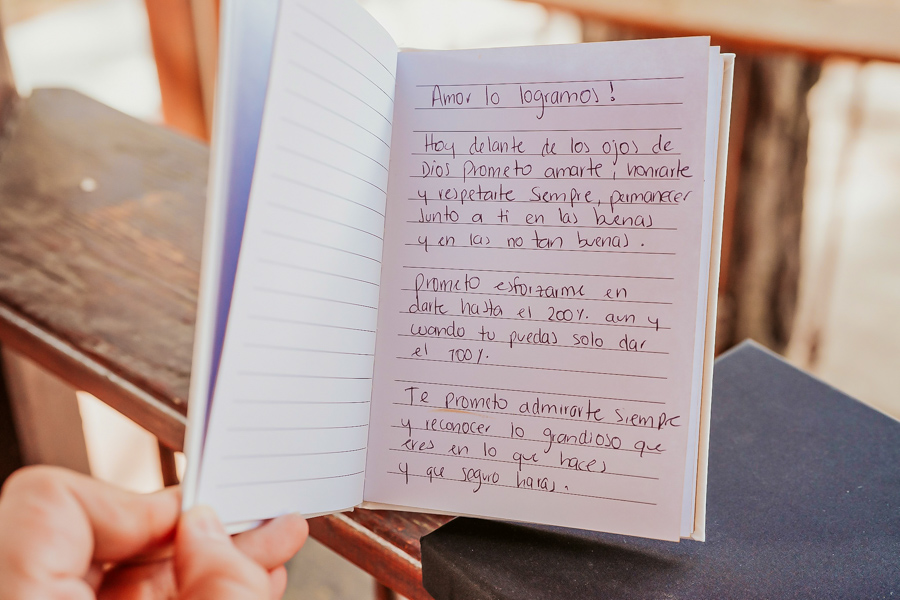 Amor lo logramos!
Hoy delante de los ojos de
Dios prometo amarte, honrarte
y respetarte siempre, permanecer
junto a ti en las buenas
y en las no tan buenas.
prometo esforzarme en
darte hasta el 200%. aun y
cuando tu puedas solo dar
el 100%.
Te prometo admirarte siempre
y reconocer lo grandioso que
eres en lo que haces
y que seguro haras.